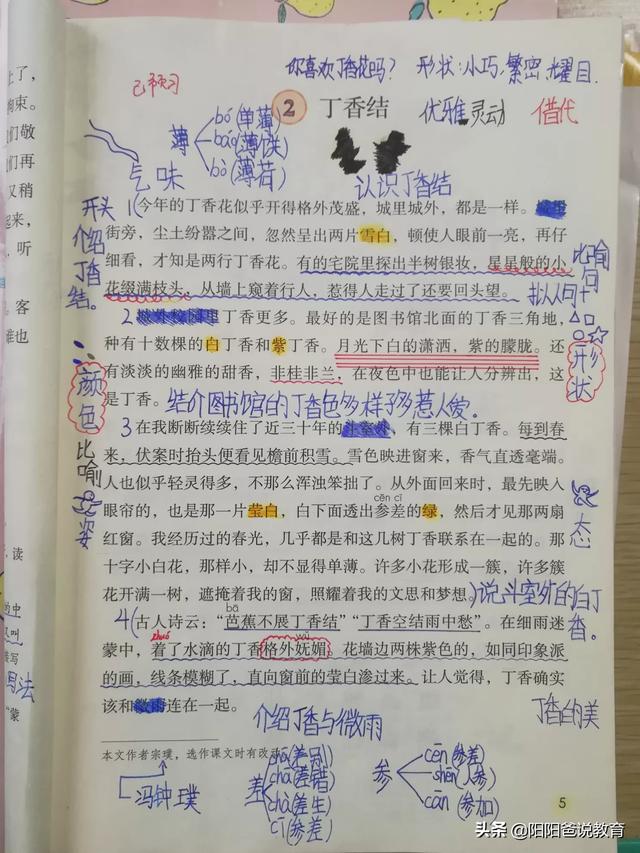 已预习
你喜欢丁香花吗? 形状:小巧,繁密,耀目.
2 丁香结
优雅灵动 借代
薄 bó(单薄)
báo(薄饼)
bò(薄荷)
气味
认识丁香结
开头介绍丁香结。
1(今年的丁香花似乎开得格外茂盛,城里城外,都是一样。城里
街旁,尘土纷嚣之间,忽然呈出两片雪白,顿使人眼前一亮,再仔
细看,才知是两行丁香花。有的宅院里探出半树银妆,星星般的小
花缀满枝头,从墙上窥着行人,惹得人走过了还要回头望。
比喻句
拟人句
2 城外校园里丁香更多。最好的是图书馆北面的丁香三角地,
种有十数棵的白丁香和紫丁香。月光下白的潇洒,紫的朦胧。还
有淡淡的幽雅的甜香,非桂非兰,在夜色中也能让人分辨出,这
是丁香。
结介图书馆白的丁香色多样子多惹人爱。
形状
颜色
比喻
姿
3 在我断断续续住了近三十年的斗室外,有三棵白丁香。每到春
来,伏案时抬头便看见檐前积雪。雪色映进窗来,香气直透毫端。
人也似乎轻灵得多,不那么浑浊笨拙了。从外面回来时,最先映入
cēn cī
眼帘的,也是那一片莹白,白下面透出参差的绿,然后才见那两扇
红窗。我经历过的春光,几乎都是和这几树丁香联系在一起的。那
十字小白花,那样小,却不显得单薄。许多小花形成一簇,许多簇
花开满一树,遮掩着我的窗,照耀着我的文思和梦想。
态
)说斗室外的白丁香。
bā
4(古人诗云:“芭蕉不展丁香结”“丁香空结雨中愁”。在细雨迷
zhuó wǔ
蒙中,着了水滴的丁香格外妩媚。花墙边两株紫色的,如同印象派
的画,线条模糊了,直向窗前的莹白渗过来。让人觉得,丁香确实
该和微雨连在一起。
介绍丁香与微雨
丁香的美
本文作者宗璞,选作课文时有改动
冯钟璞
差 chā(差别)
chà(差错)
chāi(差生)
cī(参差)
参 cēn(参差)
shēn(人参)
cān(参加)
5
上了,
拘束。
们敬
们再
又稍
起来,
,听
。客
难也
,读
的中
又叫
描写
写法
“蒙
头条 @阳阳爸说教育